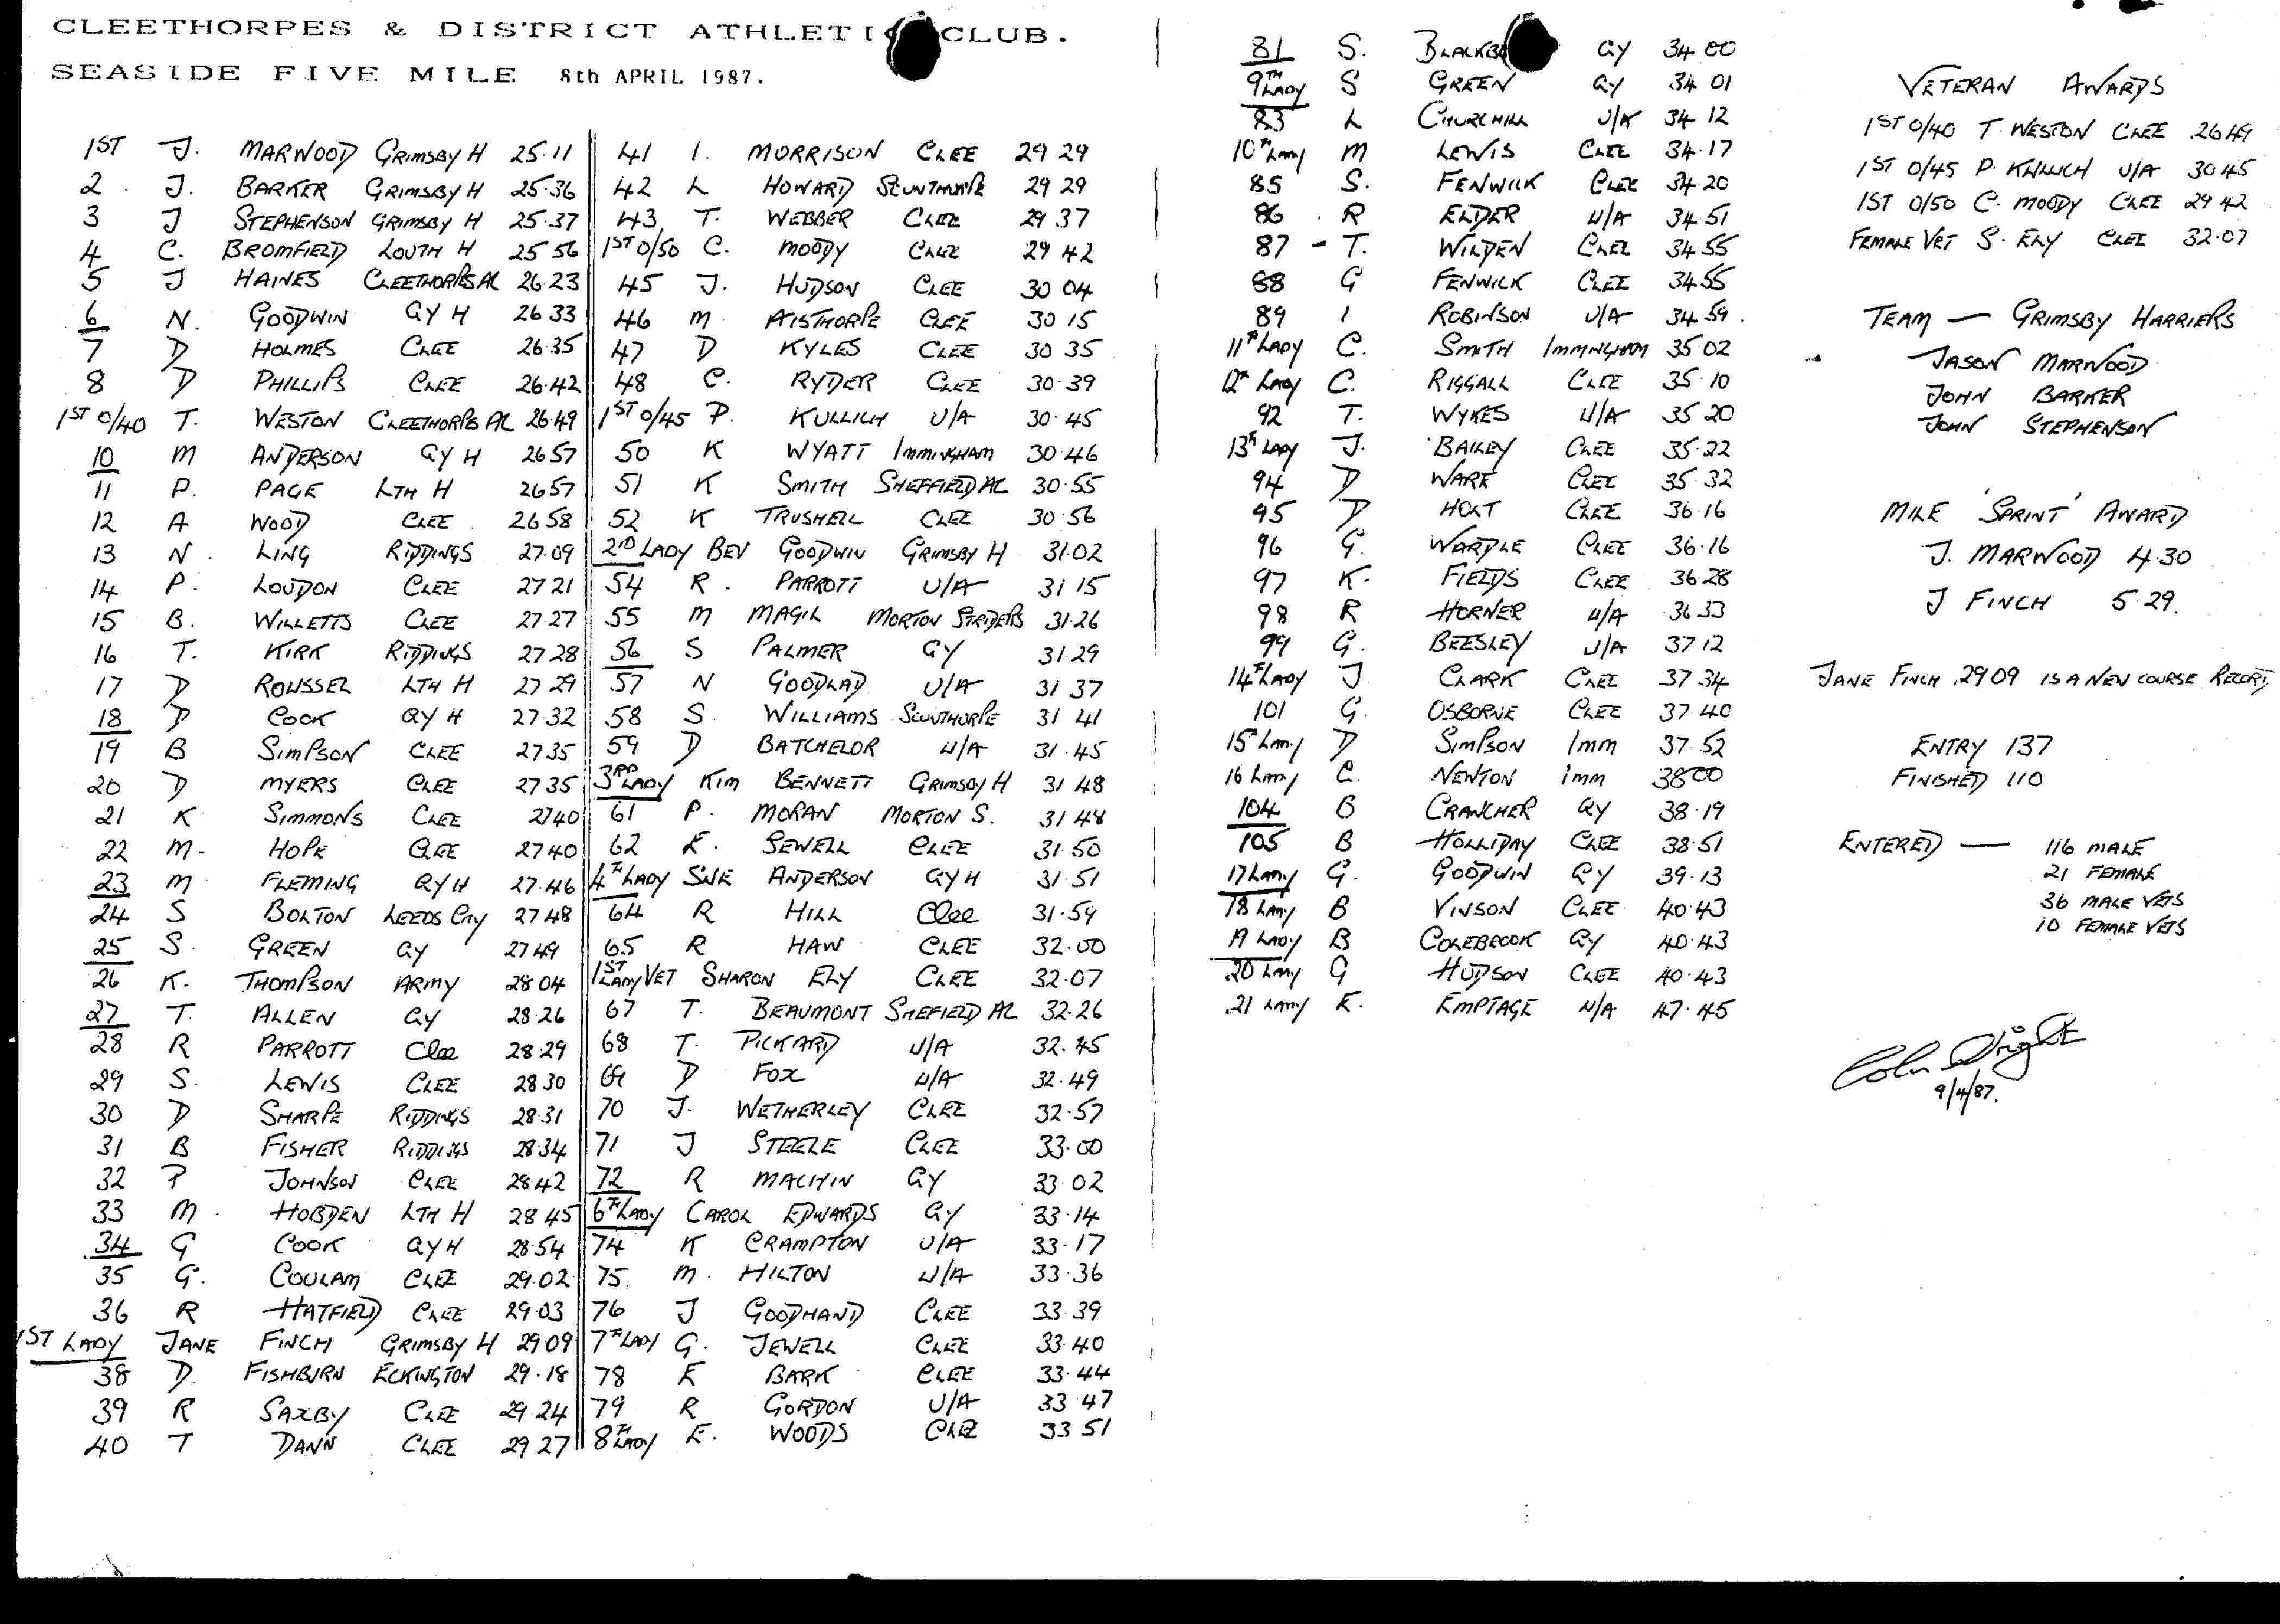 CLEETHORPES & DISTRICT ATHLETIC CLUB.
SEASIDE FIVE MILE 8th APRIL 1987.
1ST J. MARWOOD GRIMSBY H 25.11
2. J. BARKER GRIMSBY H 25.36
3 J STEPHENSON GRIMSBY H 25.37
4 C. BROMFIELD LOUTH H 25 56
5 J HAINES CLEETHORPES AC 26.23
6 N. GOODWIN GY H 26 33
7 D HOLMES CLEE 26.35
8 D PHILLIPS CLEE 26.42
1ST O/40 T. WESTON CLEETHORPES AC 26.49
10 M ANDERSON GY H 26 57
11 P. PAGE LTH H 26 57
12 A WOOD CLEE 26 58
13 N. LING RIDDINGS 27.09
14 P. LOUDON CLEE 27 21
15 B. WILLETTS CLEE 27.27
16 T. KIRK RIDDINGS 27 28
17 D ROUSSEL LTH H 27 29
18 D COOK GY H 27.32
19 B SIMPSON CLEE 27 35
20 D MYERS CLEE 27 35
21 K SIMMONS CLEE 27 40
22 M- HOPE CLEE 27 40
23 M FLEMING GY H 27.46
24 S BOLTON LEEDS CITY 27 48
25 S. GREEN GY 27 49
26 K. THOMPSON ARMY 28 04
27 T. ALLEN GY 28.26
28 R PARROTT Clee 28.29
29 S. LEWIS CLEE 28 30
30 D SHARPE RIDDINGS 28.31
31 B FISHER RIDDINGS 28.34
32 P JOHNSON CLEE 28 42
33 M. HOBDEN LTH H 28 45
34 G COOK GY H 28.54
35 G. COULAM CLEE 29.02
36 R HATFIELD CLEE 29.03
1ST LADY JANE FINCH GRIMSBY H 29 09
38 D. FISHBURN ECKINGTON 29.18
39 R SAXBY CLEE 29.24
40 T DANN CLEE 29 27
41 I. MORRISON CLEE 29 29
42 L HOWARD SCUNTHORPE 29 29
43 T. WEBBER CLEE 29 37
1ST O/50 C. MOODY CLEE 29 42
45 J. HUDSON CLEE 30 04
46 M AISTHORPE CLEE 30 15
47 D KYLES CLEE 30 35
48 C. RYDER CLEE 30.39
1ST O/45 P. KULLICH U/A 30.45
50 K WYATT IMMINGHAM 30.46
51 K SMITH SHEFFIELD AC 30.55
52 K TRUSHELL CLEE 30.56
2ND LADY BEV GOODWIN GRIMSBY H 31.02
54 R. PARROTT U/A 31 15
55 M MAGIL MORTON STRIDERS 31.26
56 S PALMER GY 31.29
57 N GOODLAD U/A 31 37
58 S. WILLIAMS SCUNTHORPE 31 41
59 D BATCHELOR U/A 31.45
3RD LADY KIM BENNETT GRIMSBY H 31 48
61 P. MORAN MORTON S. 31 48
62 E. SEWELL CLEE 31.50
4TH LADY SUE ANDERSON GY H 31.51
64 R HILL Clee 31.59
65 R HAW CLEE 32.00
1ST LADY VET SHARON ELY CLEE 32.07
67 T. BEAUMONT SHEFIELD AC 32.26
68 T. PICKARD U/A 32.45
69 D FOX U/A 32.49
70 J. WETHERLEY CLEE 32.57
71 J STEELE CLEE 33.00
72 R MACHIN GY 33 02
6TH LADY CAROL EDWARDS GY 33.14
74 K CRAMPTON U/A 33.17
75. M. HILTON U/A 33.36
76 J GOODHAND CLEE 33.39
7TH LADY G. JEWELL CLEE 33.40
78 E BARK CLEE 33.44
79 R GORDON U/A 33 47
8TH LADY E. WOODS CLEE 33 51
81 S. GY 34 00
9TH LADY S GREEN GY 34 01
83 L CHURCHILL U/A 34 12
10TH LADY M LEWIS CLEE 34.17
85 S. FENWICK CLEE 34 20
86 R ELDER U/A 34.51
87 - T. WILDEN CLEE 34.55
88 G FENWICK CLEE 34.55
89 I ROBINSON U/A 34 59.
11TH LADY C. SMITH IMMINGHAM 35 02
12TH LADY C. RIGGALL CLEE 35.10
92 T. WYKES U/A 35 20
13TH LADY J. BAILEY CLEE 35.22
94 D WARE CLEE 35 32
95 D HOLT CLEE 36.16
96 G. WARDLE CLEE 36.16
97 K. FIELDS CLEE 36 28
98 R HORNER U/A 36 33
99 G. BEESLEY U/A 37 12
14TH LADY J CLARK CLEE 37.34
101 G. OSBORNE CLEE 37 40
15TH LADY D SIMPSON IMM 37.52
16 LADY C. NEWTON IMM 38 00
104 B CRANCHER GY 38.19
105 B HOLLIDAY CLEE 38.51
17 LADY G. GOODWIN GY 39.13
18 LADY B VINSON CLEE 40.43
19 LADY B COLEBROOK GY 40.43
20 LADY G HUDSON CLEE 40.43
21 LADY E. EMPTAGE U/A 47.45
VETERAN AWARDS
1ST O/40 T. WESTON CLEE 26 49
1ST O/45 P. KULLICH U/A 30 45
1ST O/50 C. MOODY CLEE 29 42
FEMALE VET S. ELY CLEE 32.07
TEAM — GRIMSBY HARRIERS
JASON MARWOOD
JOHN BARKER
JOHN STEPHENSON
MILE 'SPRINT' AWARD
J. MARWOOD 4.30
J FINCH 5.29.
JANE FINCH 29 09 IS A NEW COURSE RECORD
ENTRY 137
FINISHED 110
ENTERED — 116 MALE
21 FEMALE
36 MALE VETS
10 FEMALE VETS
9/4/87.